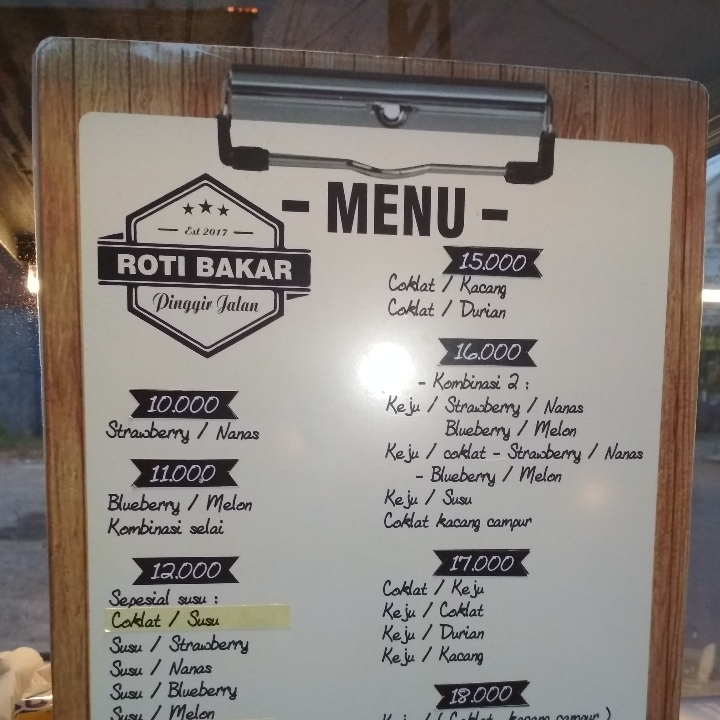 - MENU -
Est 2017
ROTI BAKAR
Pinggir Jalan
10.000
Strawberry / Nanas
11.000
Blueberry / Melon
Kombinasi selai
12.000
Sepesial susu :
Coklat / Susu
Susu / Strawberry
Susu / Nanas
Susu / Blueberry
Susu / Melon
15.000
Coklat / Kacang
Coklat / Durian
16.000
- Kombinasi 2 :
Keju / Strawberry / Nanas
Blueberry / Melon
Keju / coklat - Strawberry / Nanas
- Blueberry / Melon
Keju / Susu
Coklat kacang campur
17.000
Coklat / Keju
Keju / Coklat
Keju / Durian
Keju / Kacang
18.000
Keju / ( Coklat kacang campur )